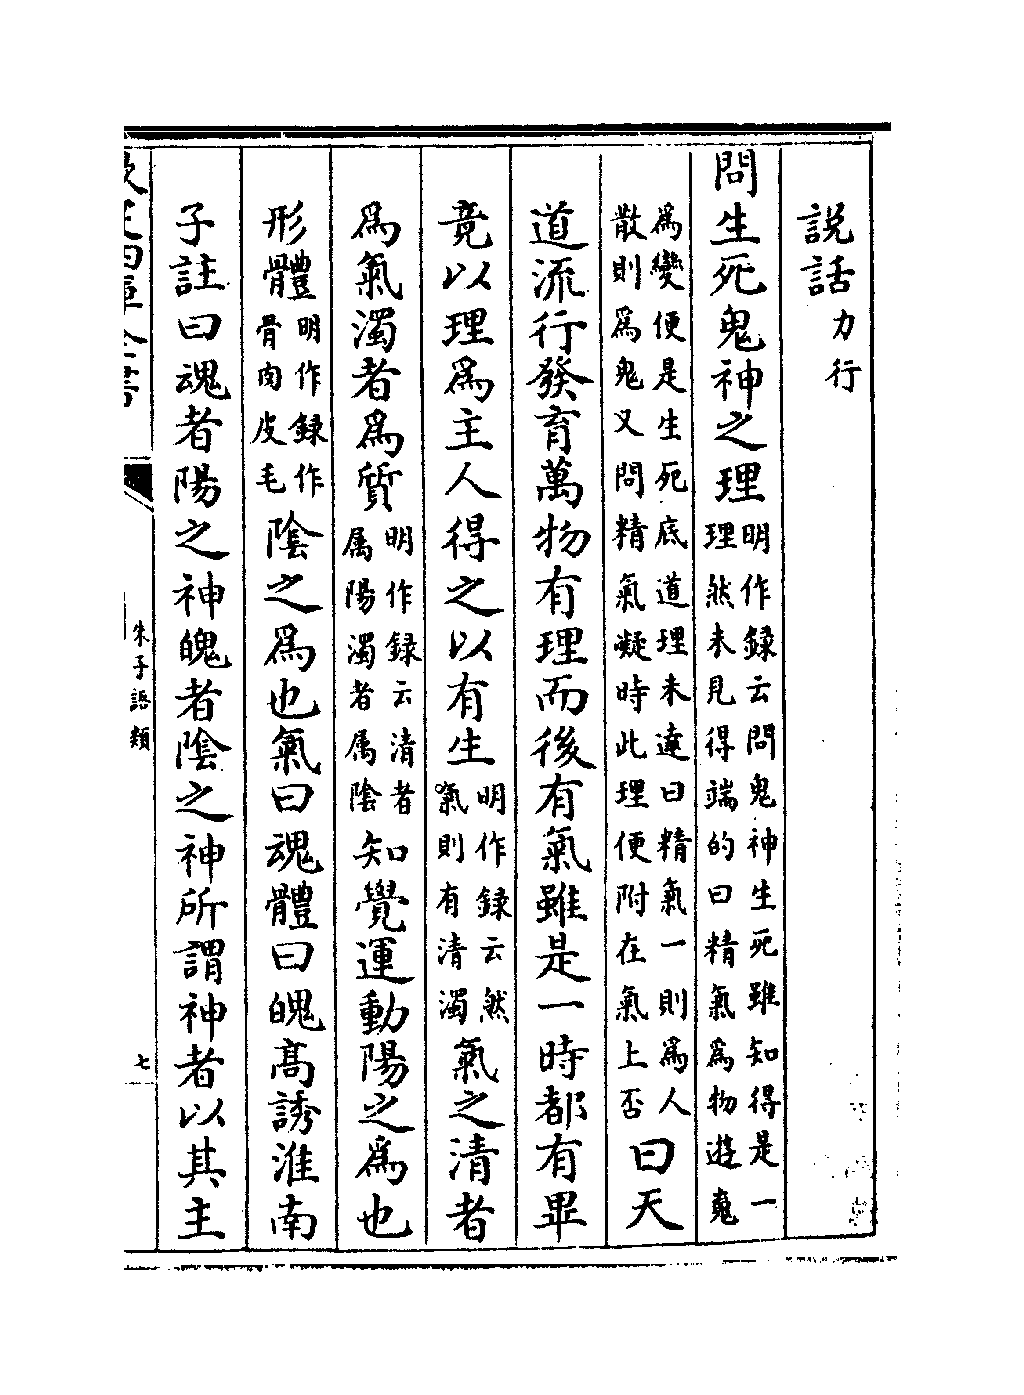 說話力行
問生死鬼神之理明作録云問鬼神生死雖知得是一
理然未見得端的曰精氣爲物遊䰟
爲變便是生死底道理未達曰精氣一則爲人
散則爲鬼又問精氣凝時此理便附在氣上否曰天
道流行發育萬物有理而後有氣雖是一時都有畢
竟以理爲主人得之以有生明作録云然
氣則有清濁氣之清者
爲氣濁者爲質明作録云清者
属陽濁者属陰知覺運動陽之爲也
形體明作録作
骨肉皮毛陰之爲也氣曰魂體曰魄高誘淮南
子註曰魂者陽之神魄者陰之神所謂神者以其主
朱子語類
七